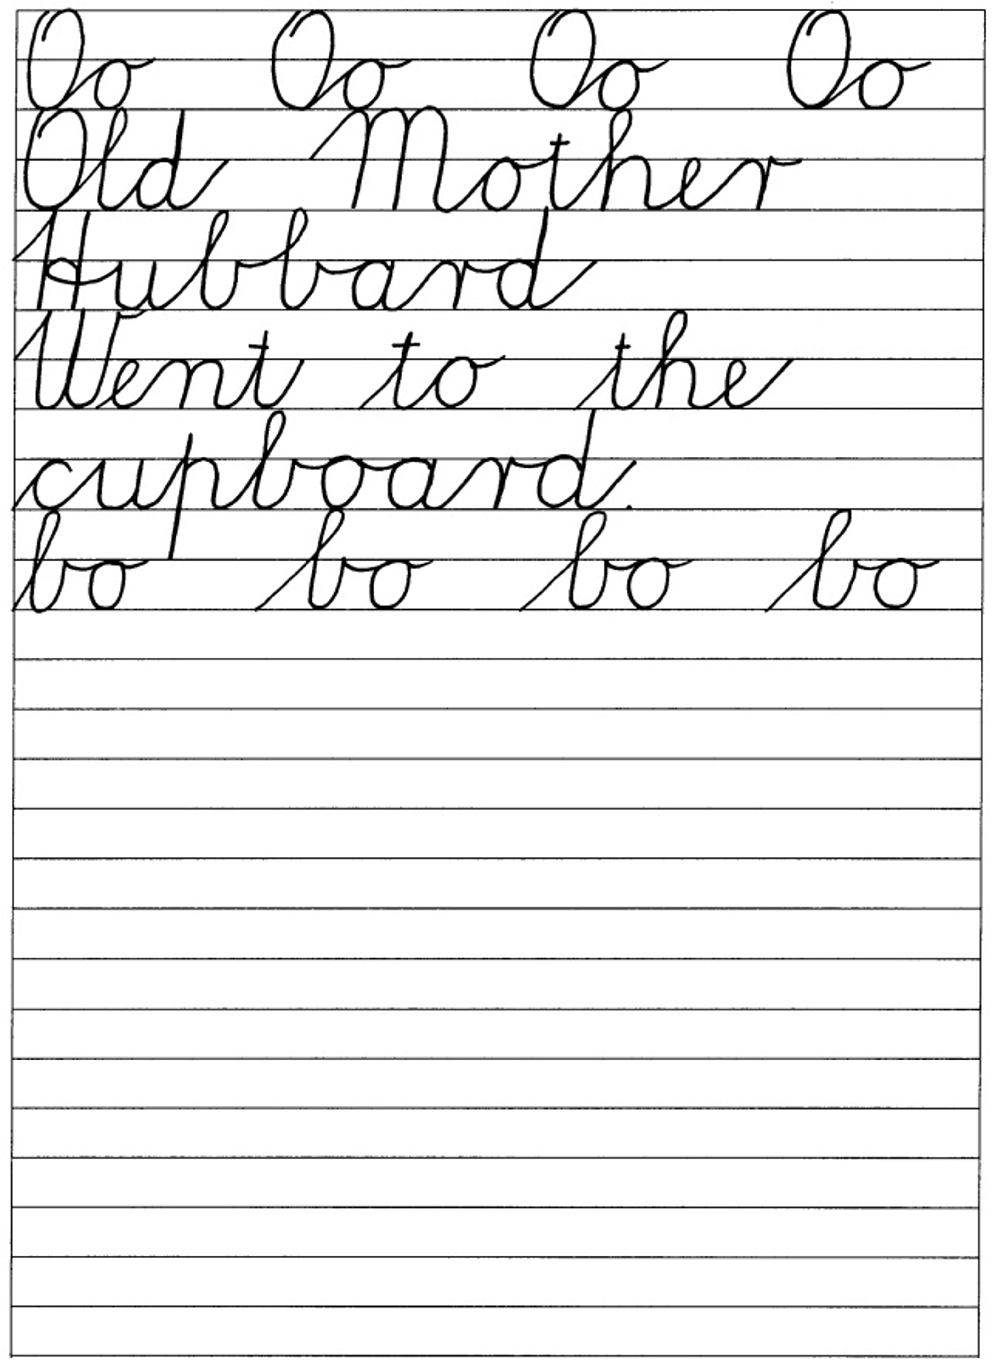 Oo Oo Oo Oo
Old Mother
Hubbard
Went to the
cupboard.
bo bo bo bo